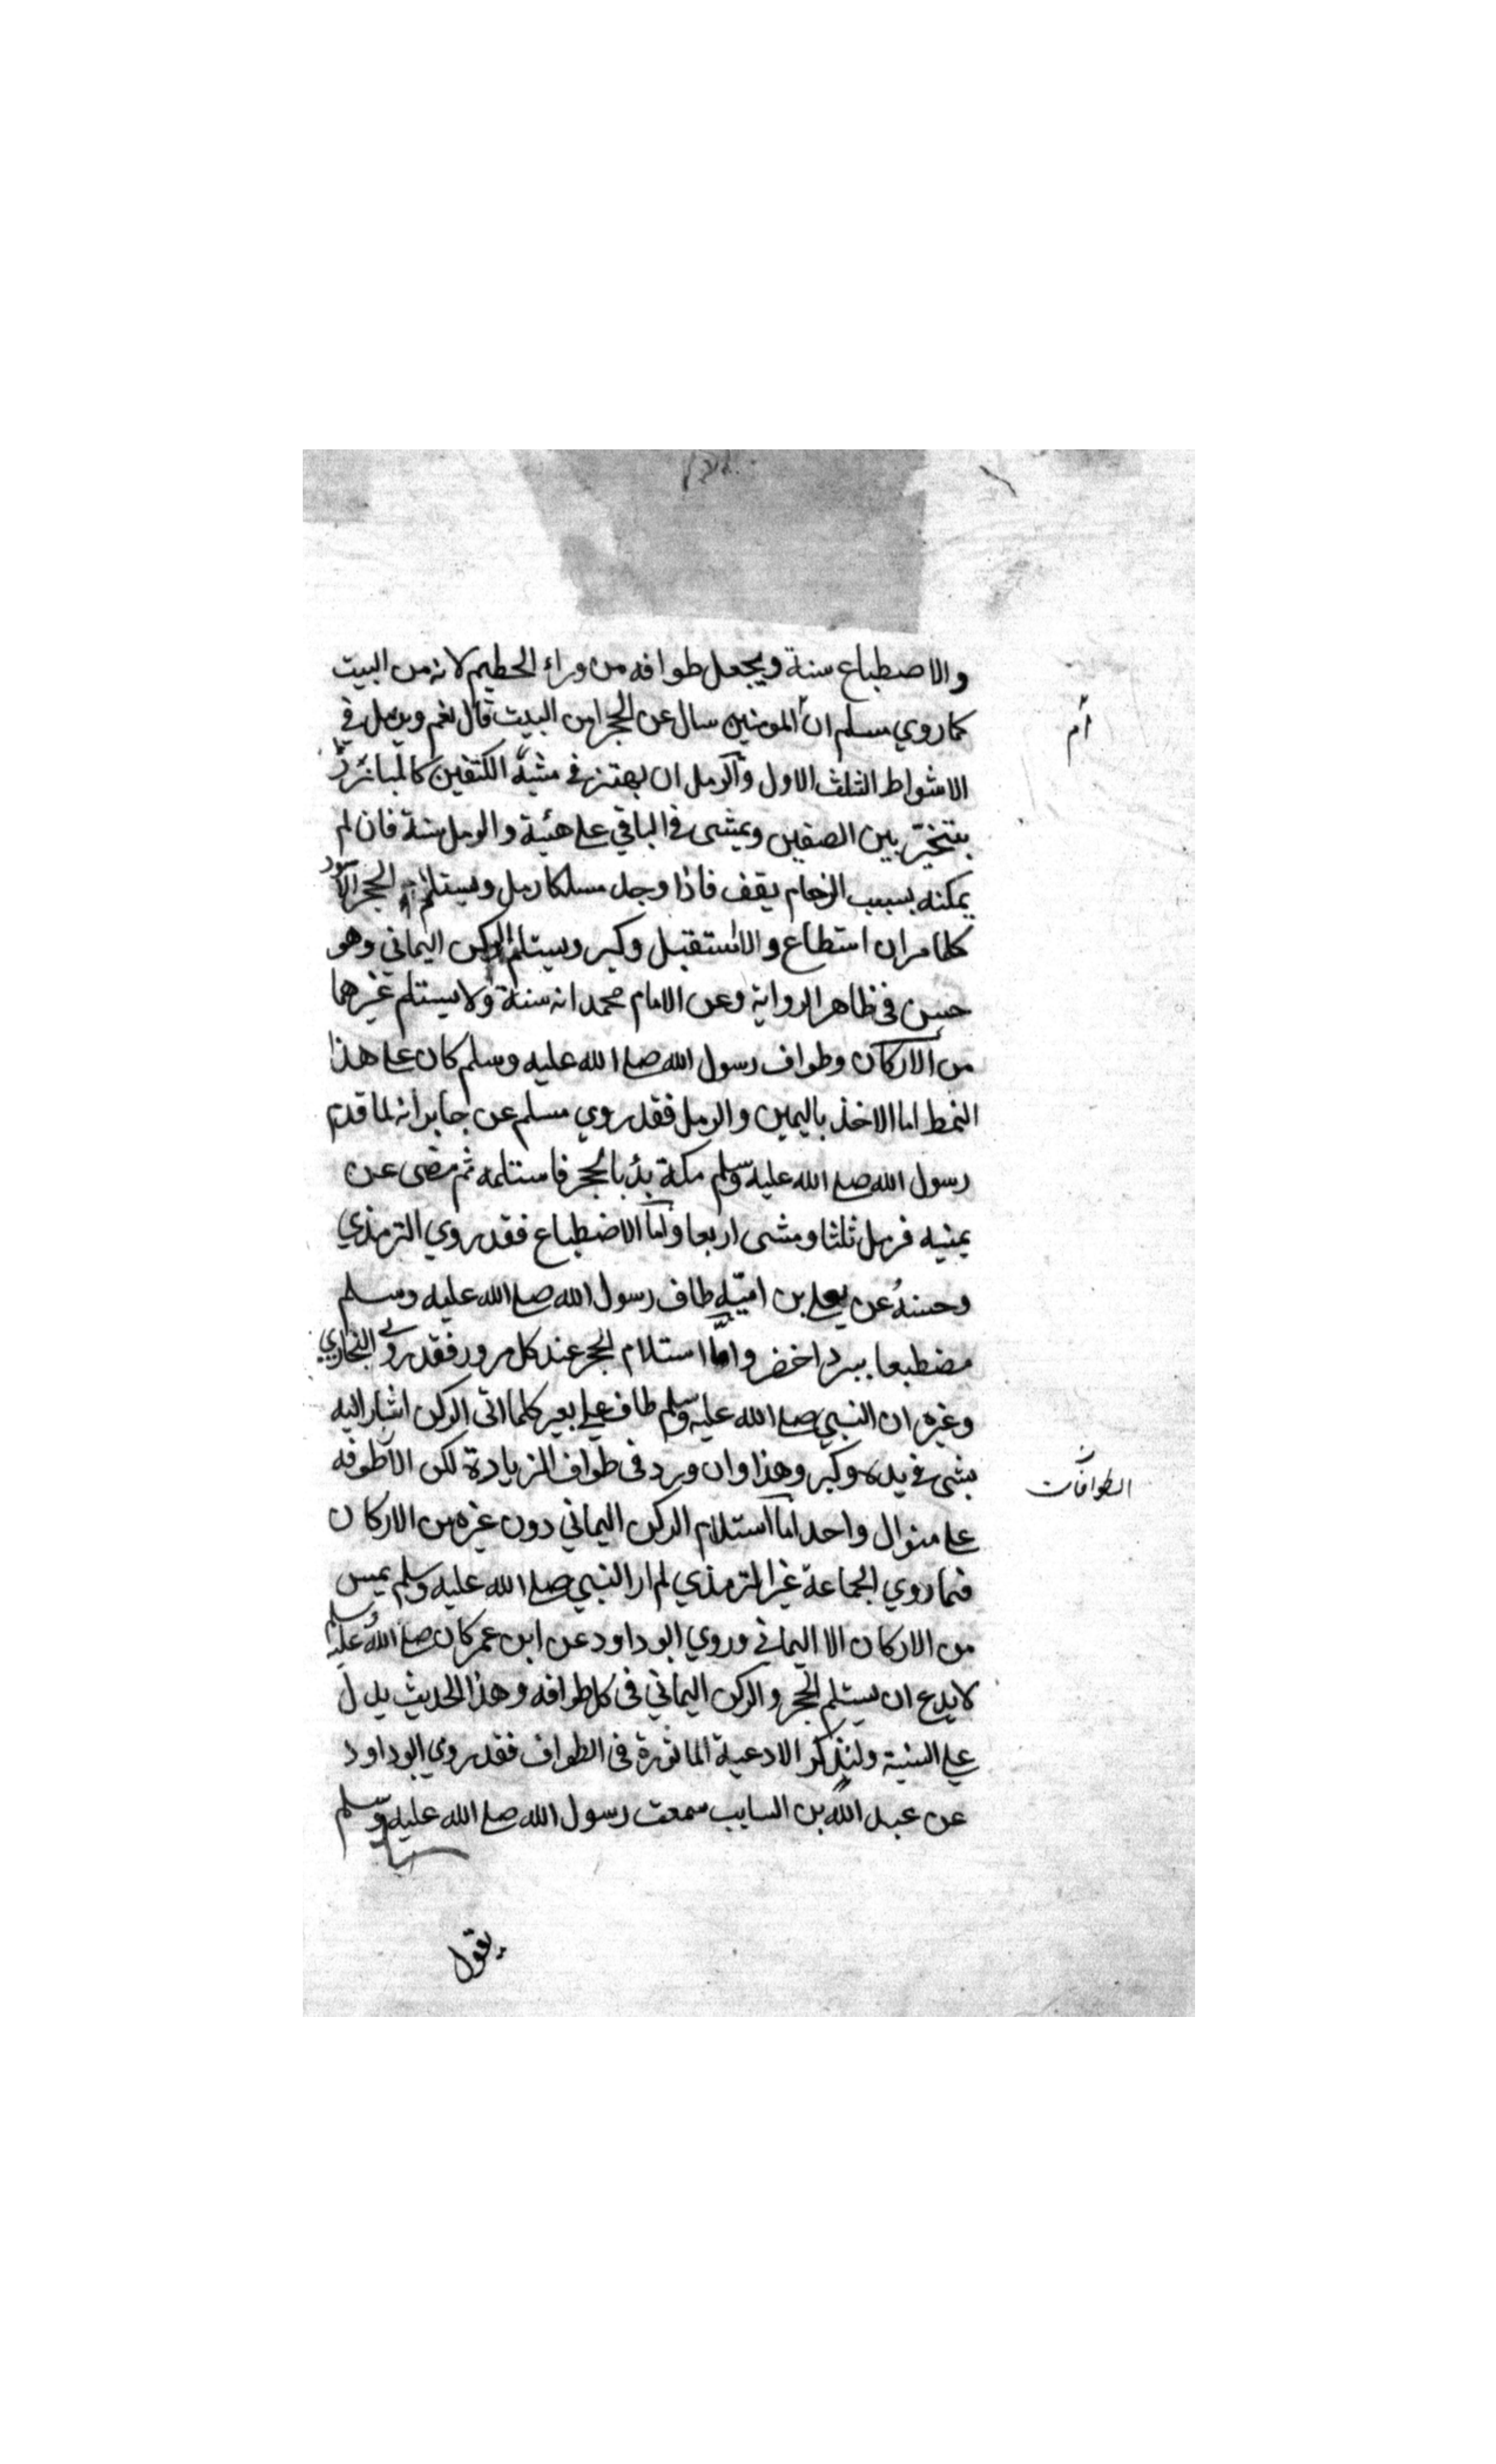 والاصطباع سنة ويجعل طوافه من وراء الحطيم لانه من البيت
كما روي مسلم ان المومنين سال عن الحجر امن البيت قال نعم ويرمل في
ام
الاشواط الثلث الاول والرمل ان يهتز في مشيه الكتفين كالمبارز
يتبختر بين الصفين ويمشى في الباقي على هيئة والرمل سنة فان لم
يمكنه بسبب الزحام يقف فاذا وجد مسلكا رمل ويستلم الحجر الاسود
كلما مر ان استطاع والا استقبل وكبر ويستلم الركن اليماني وهو
حسن في ظاهر الرواية وعن الامام محمد انه سنة ولا يستلم غيرهما
من الاركان وطواف رسول الله صلى الله عليه وسلم كان على هذا
النمط اما الاخذ باليمين والرمل فقد روي مسلم عن جابر انه لما قدم
رسول الله صلى الله عليه وسلم مكة بدٔ بالحجر فاستلمه ثم مضى عن
يمنيه فرمل ثلثا ومشى اربعا واما الاضطباع فقد روي الترمذي
وحسنه عن يعلى بن اميّه طاف رسول الله صلى الله عليه وسلم
مضطبعا ببرد اخضر وامّا استلام الحجر عند كل مرور فقد روي البخاري
وغيره ان النبي صلى الله عليه وسلم طاف على بعير كلما اتى الركن اشار اليه
بشى في يده وكبر وهذا وان ورد في طواف الزيادة لكن الاطوفه
الطوافات
على منوال واحد اما استلام الركن اليماني دون غيره من الاركان
فما روي الجماعة غير الترمذي لم ار النبي صلى الله عليه وسلم يمس
من الاركان الا اليماني وروي ابو داود عن ابن عمر كان صلى الله عليه وسلم
لا يدع ان يستلم الحجر والركن اليماني في كل طوافه وهذا الحديث يدل
على السنية ولنذكر الادعية الماثورة في الطواف فقد روي ابو داود
عن عبد الله بن السايب سمعت رسول الله صلى الله عليه وسلم
يقول